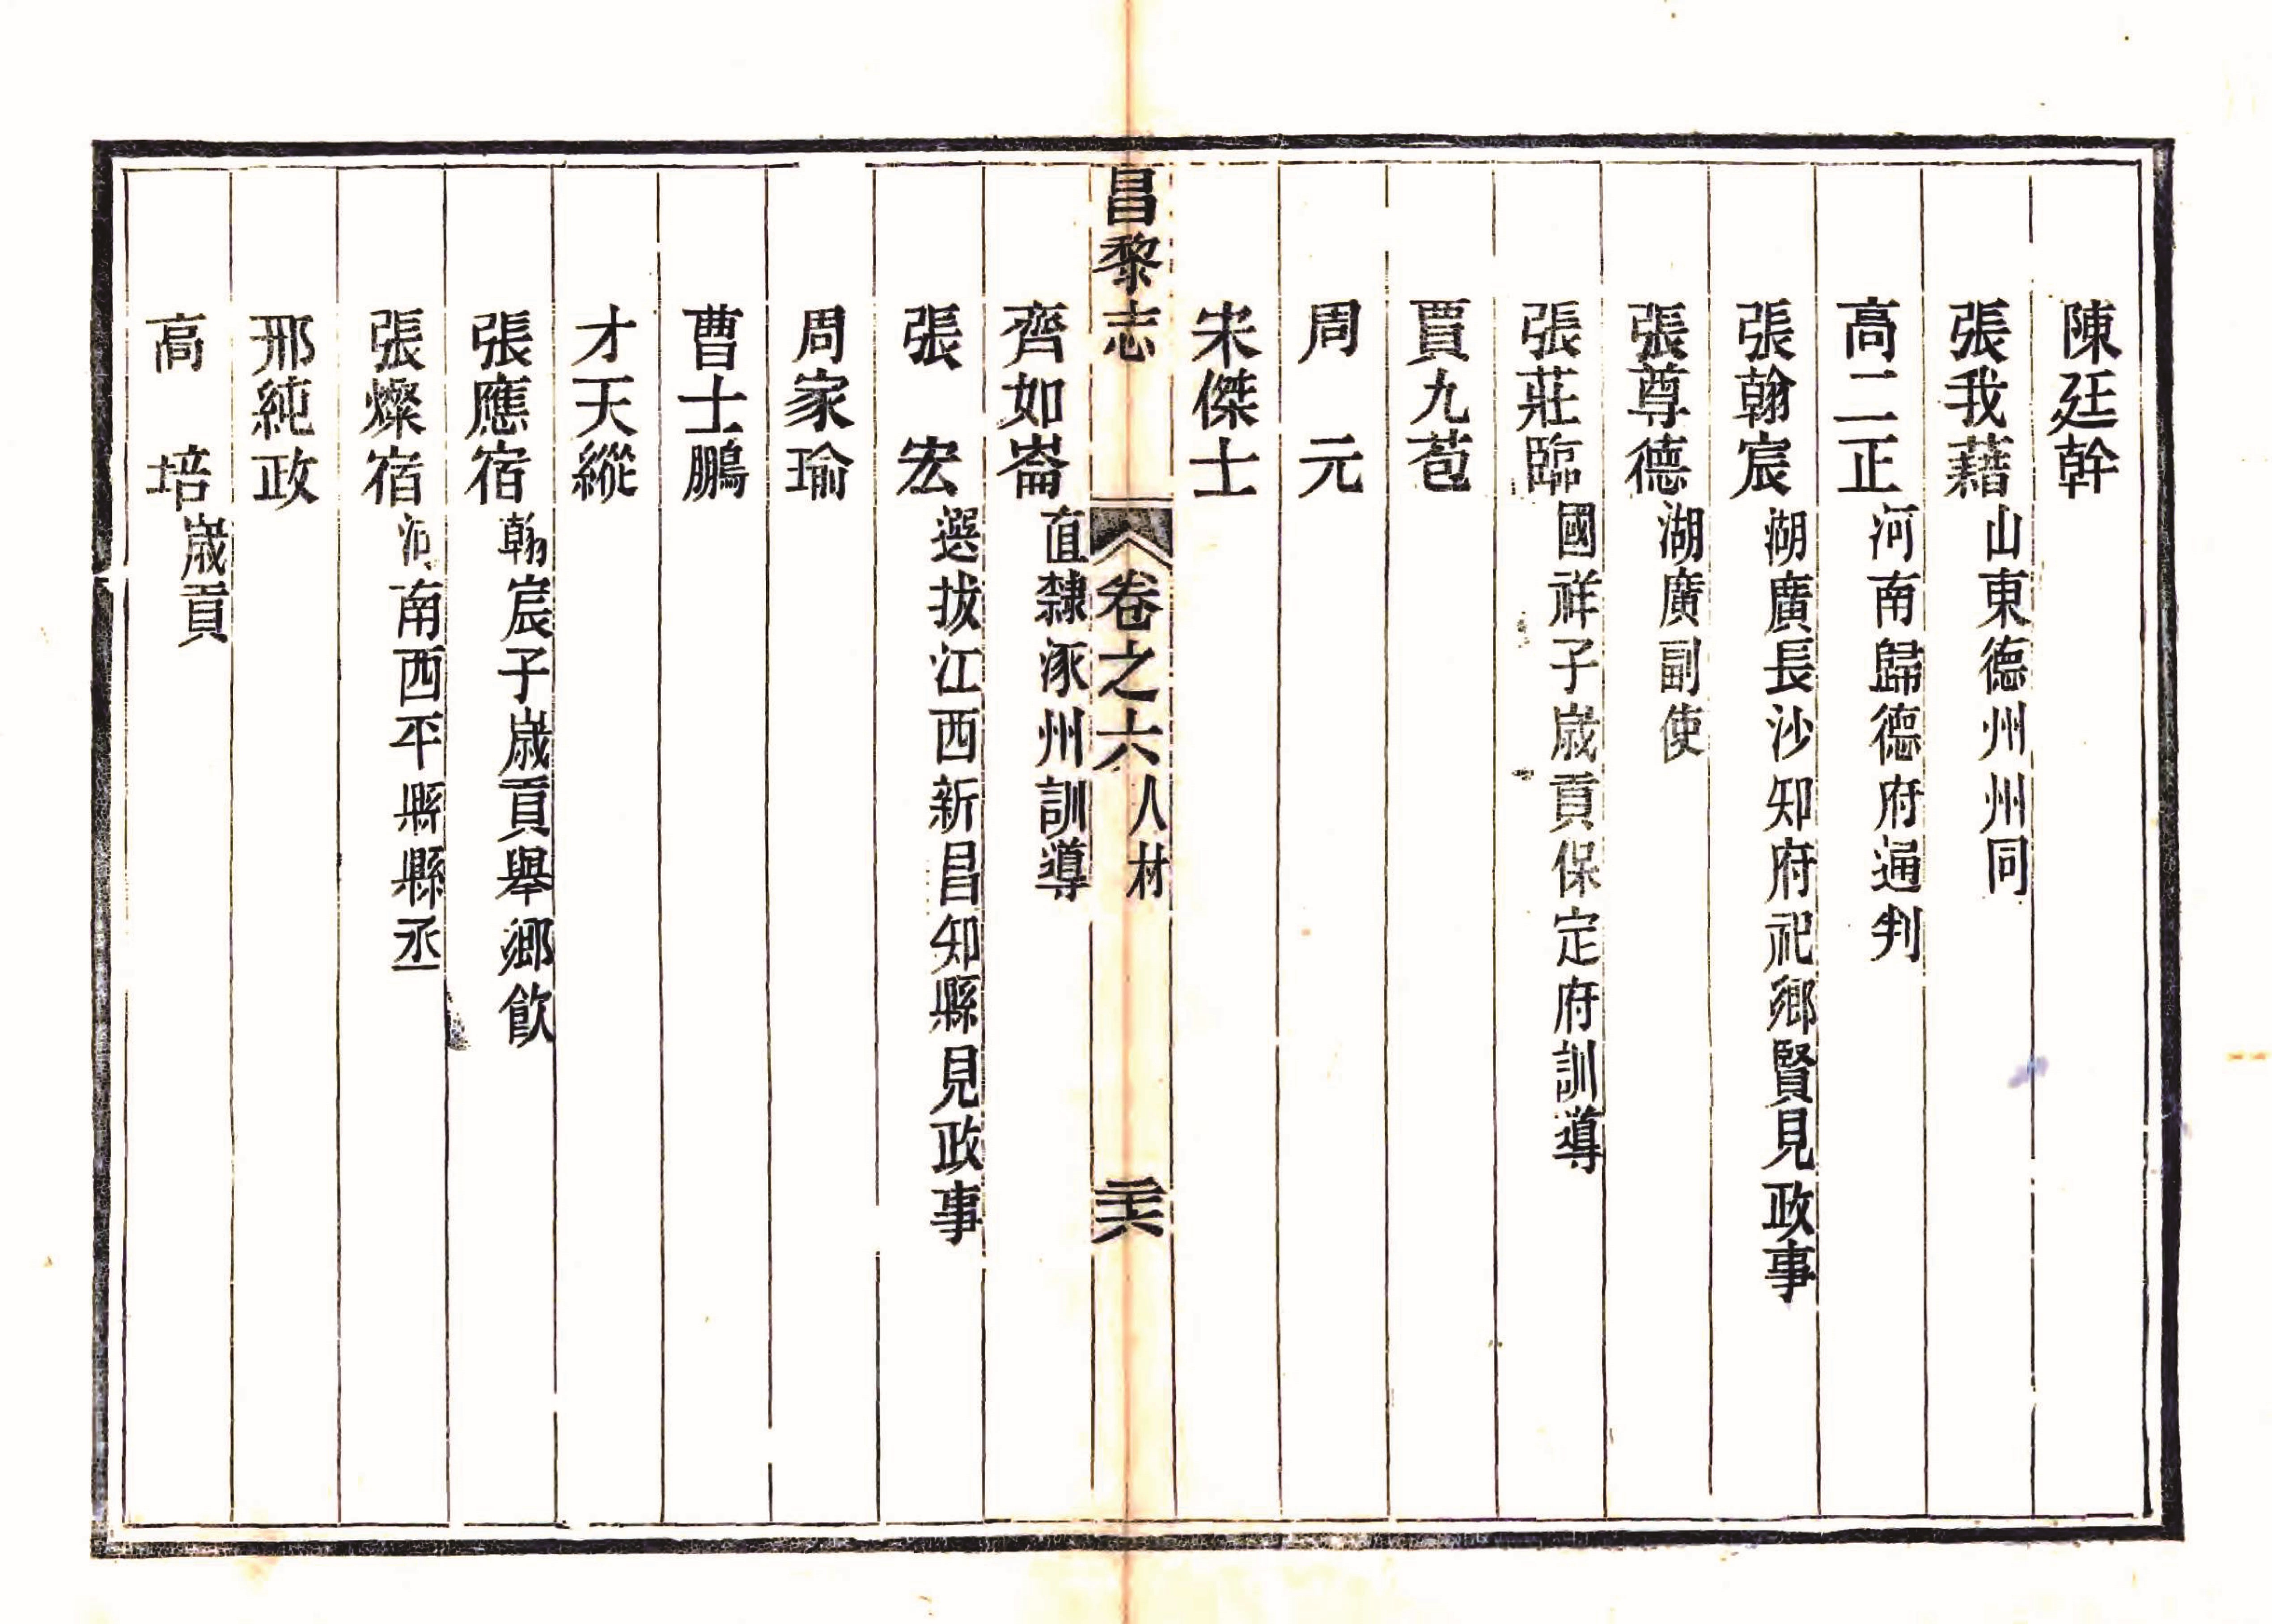 陳廷幹
張我藉山東德州州同
高二正河南歸德府通判
張翰宸湖廣長沙知府祀鄉賢見政事
張尊德湖廣副使
張莊臨國祥子歲貢保定府訓導
賈九苞
周元
宋傑士
昌黎志 卷之六 人材 二十六
齊如崙直隸涿州訓導
張宏選拔江西新昌知縣見政事
周家瑜
曹士鵬
才天縱
張應宿翰宸子歲貢舉鄉飲
張燦宿河南西平縣縣丞
邢純政
高培歲貢